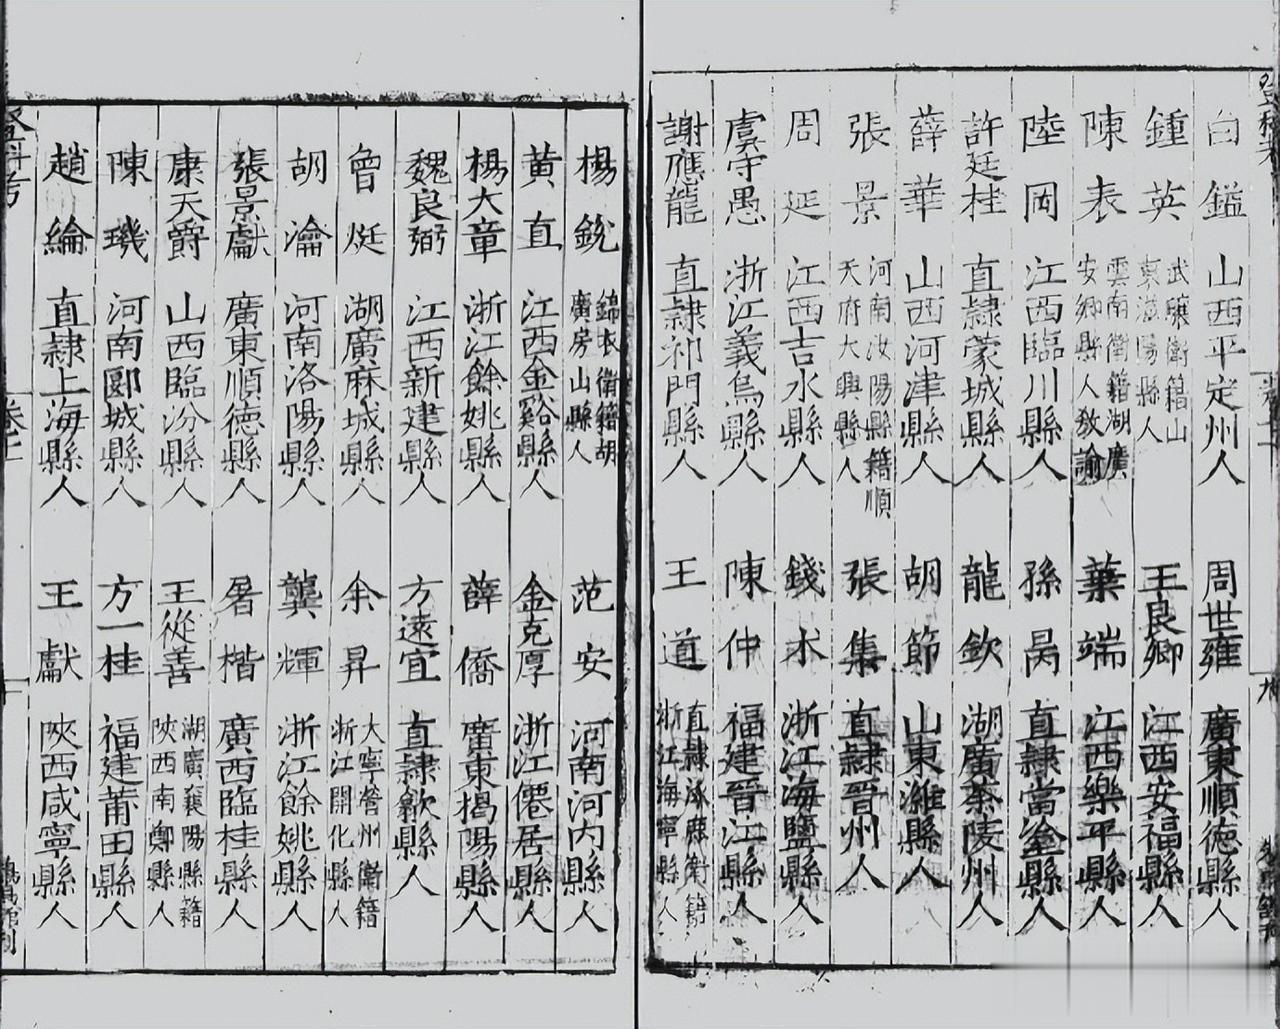 白鎰 山西平定州人 周世雍 廣東順德縣人
鍾英 武驤衛籍山東滋陽縣人 王良卿 江西安福縣人
陳表 雲南衛籍湖廣安鄉縣人教諭 葉端 江西樂平縣人
陸岡 江西臨川縣人 孫昺 直隸當塗縣人
許廷桂 直隸蒙城縣人 龍欽 湖廣茶陵州人
薛華 山西河津縣人 胡節 山東濰縣人
張景 河南汝陽縣籍順天府大興縣人 張集 直隸晉州人
周延 江西吉水縣人 錢木 浙江海鹽縣人
虞守愚 浙江義烏縣人 陳仲 福建晉江縣人
謝應龍 直隸祁門縣人 王道 直隸涿鹿衛籍浙江海寧縣人
楊銳 錦衣衛籍胡廣房山縣人 范安 河南河內縣人
黃直 江西金谿縣人 金克厚 浙江僊居縣人
楊大章 浙江餘姚縣人 薛僑 廣東揭陽縣人
魏良弼 江西新建縣人 方遠宜 直隸歙縣人
曾烶 湖廣麻城縣人 余昇 大寧營州衛籍浙江開化縣人
胡瀹 河南洛陽縣人 龔輝 浙江餘姚縣人
張景獻 廣東順德縣人 屠楷 廣西臨桂縣人
康天爵 山西臨汾縣人 王從善 湖廣襄陽縣籍陝西南鄭縣人
陳璣 河南郾城縣人 方一桂 福建莆田縣人
趙綸 直隸上海縣人 王獻 陝西咸寧縣人
登科考